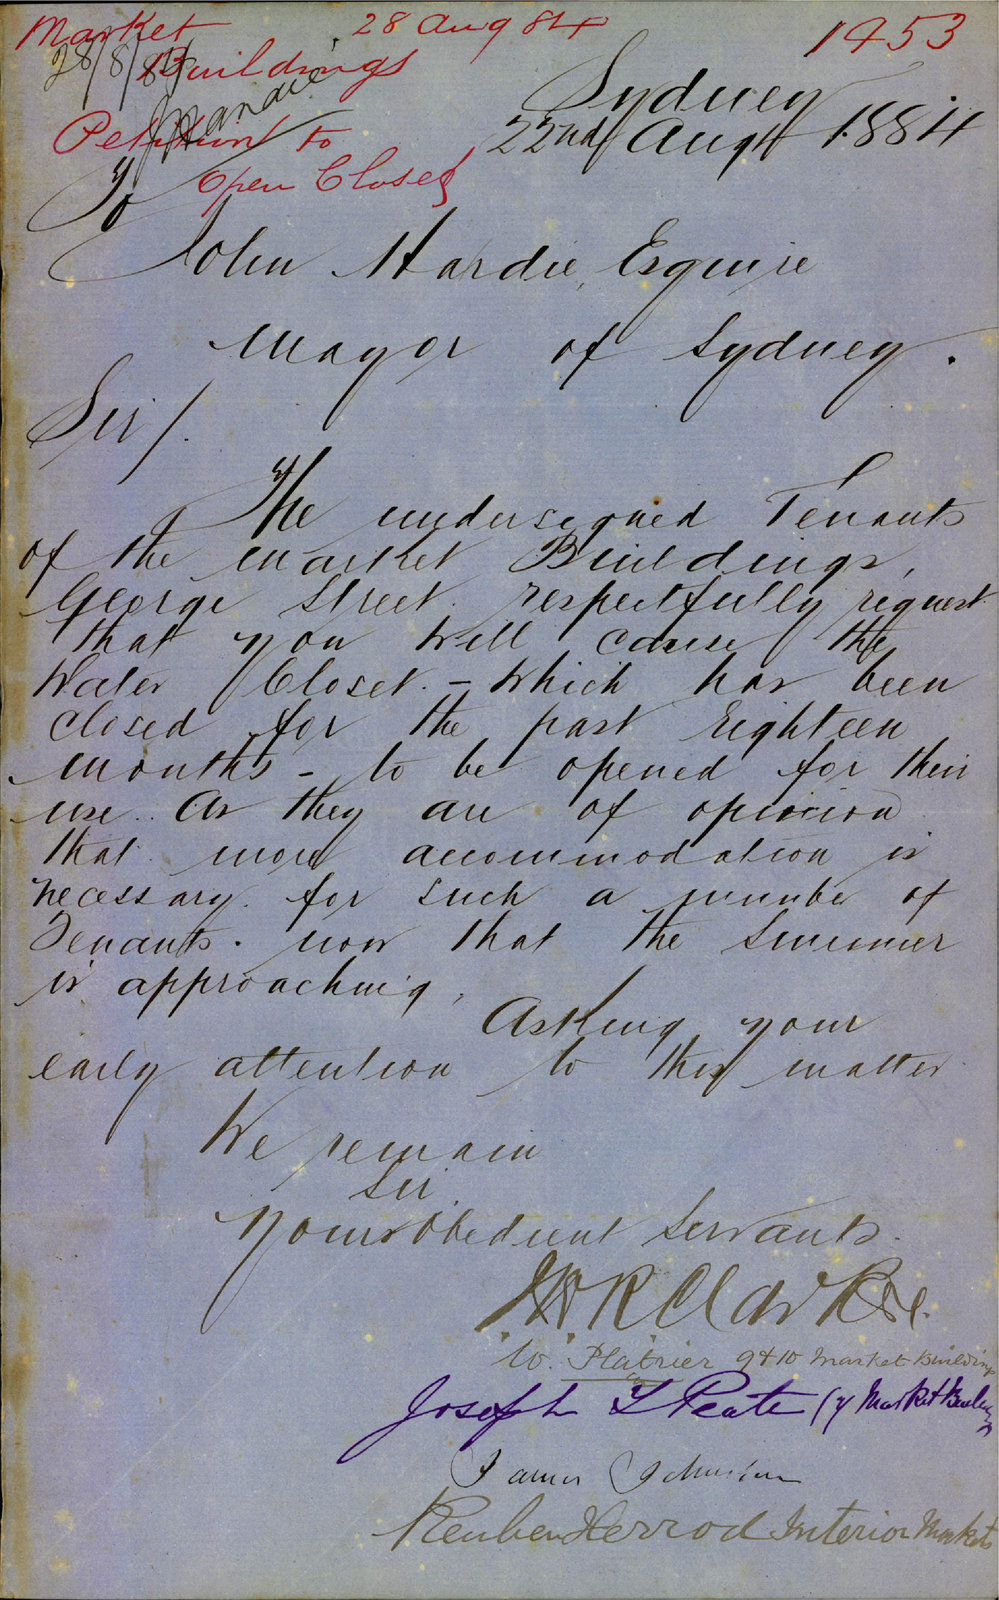 Market 28 Aug 84 1453
Buildings
28/8/84
Petition to
Open Closet
Sydney
22nd Augt 1884
To
John Hardie, Esquire
Mayor of Sydney.
Sir/.
The undersigned Tenants
of the Market Buildings,
George Street. respectfully request
that you will cause the
Water Closet. – which has been
closed for the past eighteen
months – to be opened for their
use. As they are of opinion
that more accommodation is
necessary. for such a number of
Tenants. now that the Summer
is approaching.
Asking your
early attention to this matter.
We remain
Sir.
Your Obedient Servants.
Clarke.
W. 9 & 10 Market Building
Joseph Peate Market
James Johnston
Reuben Herrod Interior Markets